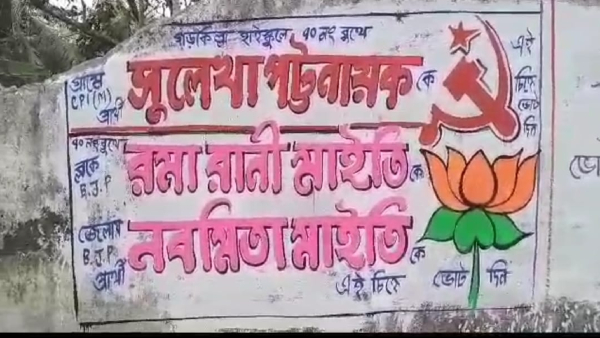 গড়কিল্লা হাইস্কুলে ৭০ নং বুথে
গ্রামে
CPI(M)
প্রার্থী
সুলেখা পট্টনায়ক কে
এই
চিহ্নে
ভোট
দিন
৭০ নং বুথে
ব্লকে
B.J.P
রমা রানী মাইতি কে
জেলায়
B.J.P.
প্রার্থী
নবমিতা মাইতি কে
এই চিহ্নে ভোট দিন